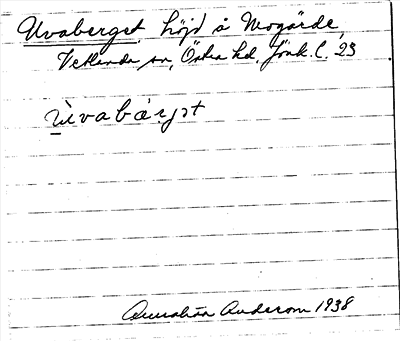 Uvaberget, höjd å Mogärde,
Vetlanda sn, Östra hd, Jönk. l. 23
ùvabærjət
Anderson 1938